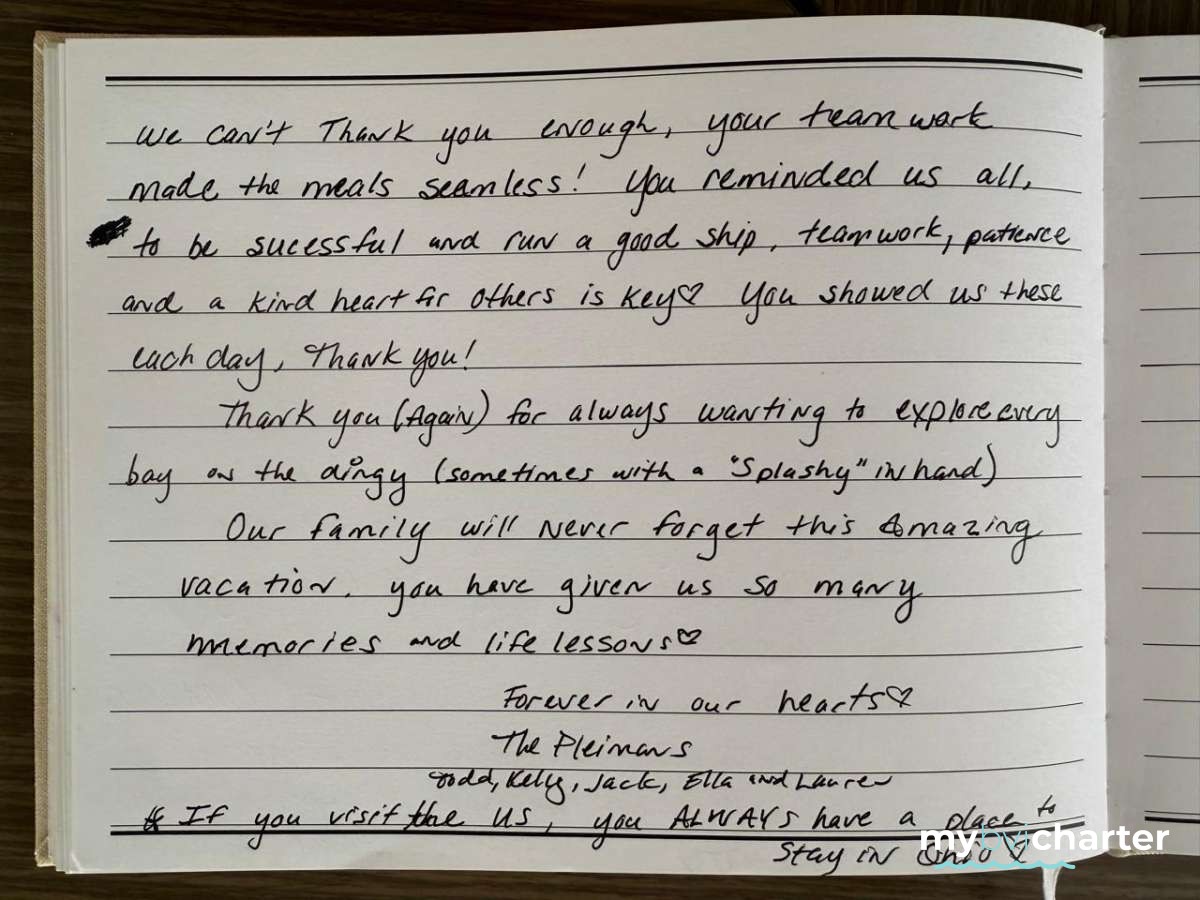 We can't Thank you enough, your team work
made the meals seamless! You reminded us all,
to be sucessful and run a good ship, teamwork, patience
and a kind heart for others is key♡ You showed us these
each day, Thank you!
Thank you (Again) for always wanting to explore every
bay on the dingy (sometimes with a "Splashy" in hand)
Our family will Never forget this Amazing
vacation. you have given us so many
memories and life lessons♡
Forever in our hearts♡
The Pleimans
Todd, Kelly, Jack, Ella and Lauren
* If you visit the US, you ALWAYS have a place to
Stay in Ohio ♡
mybvicharter